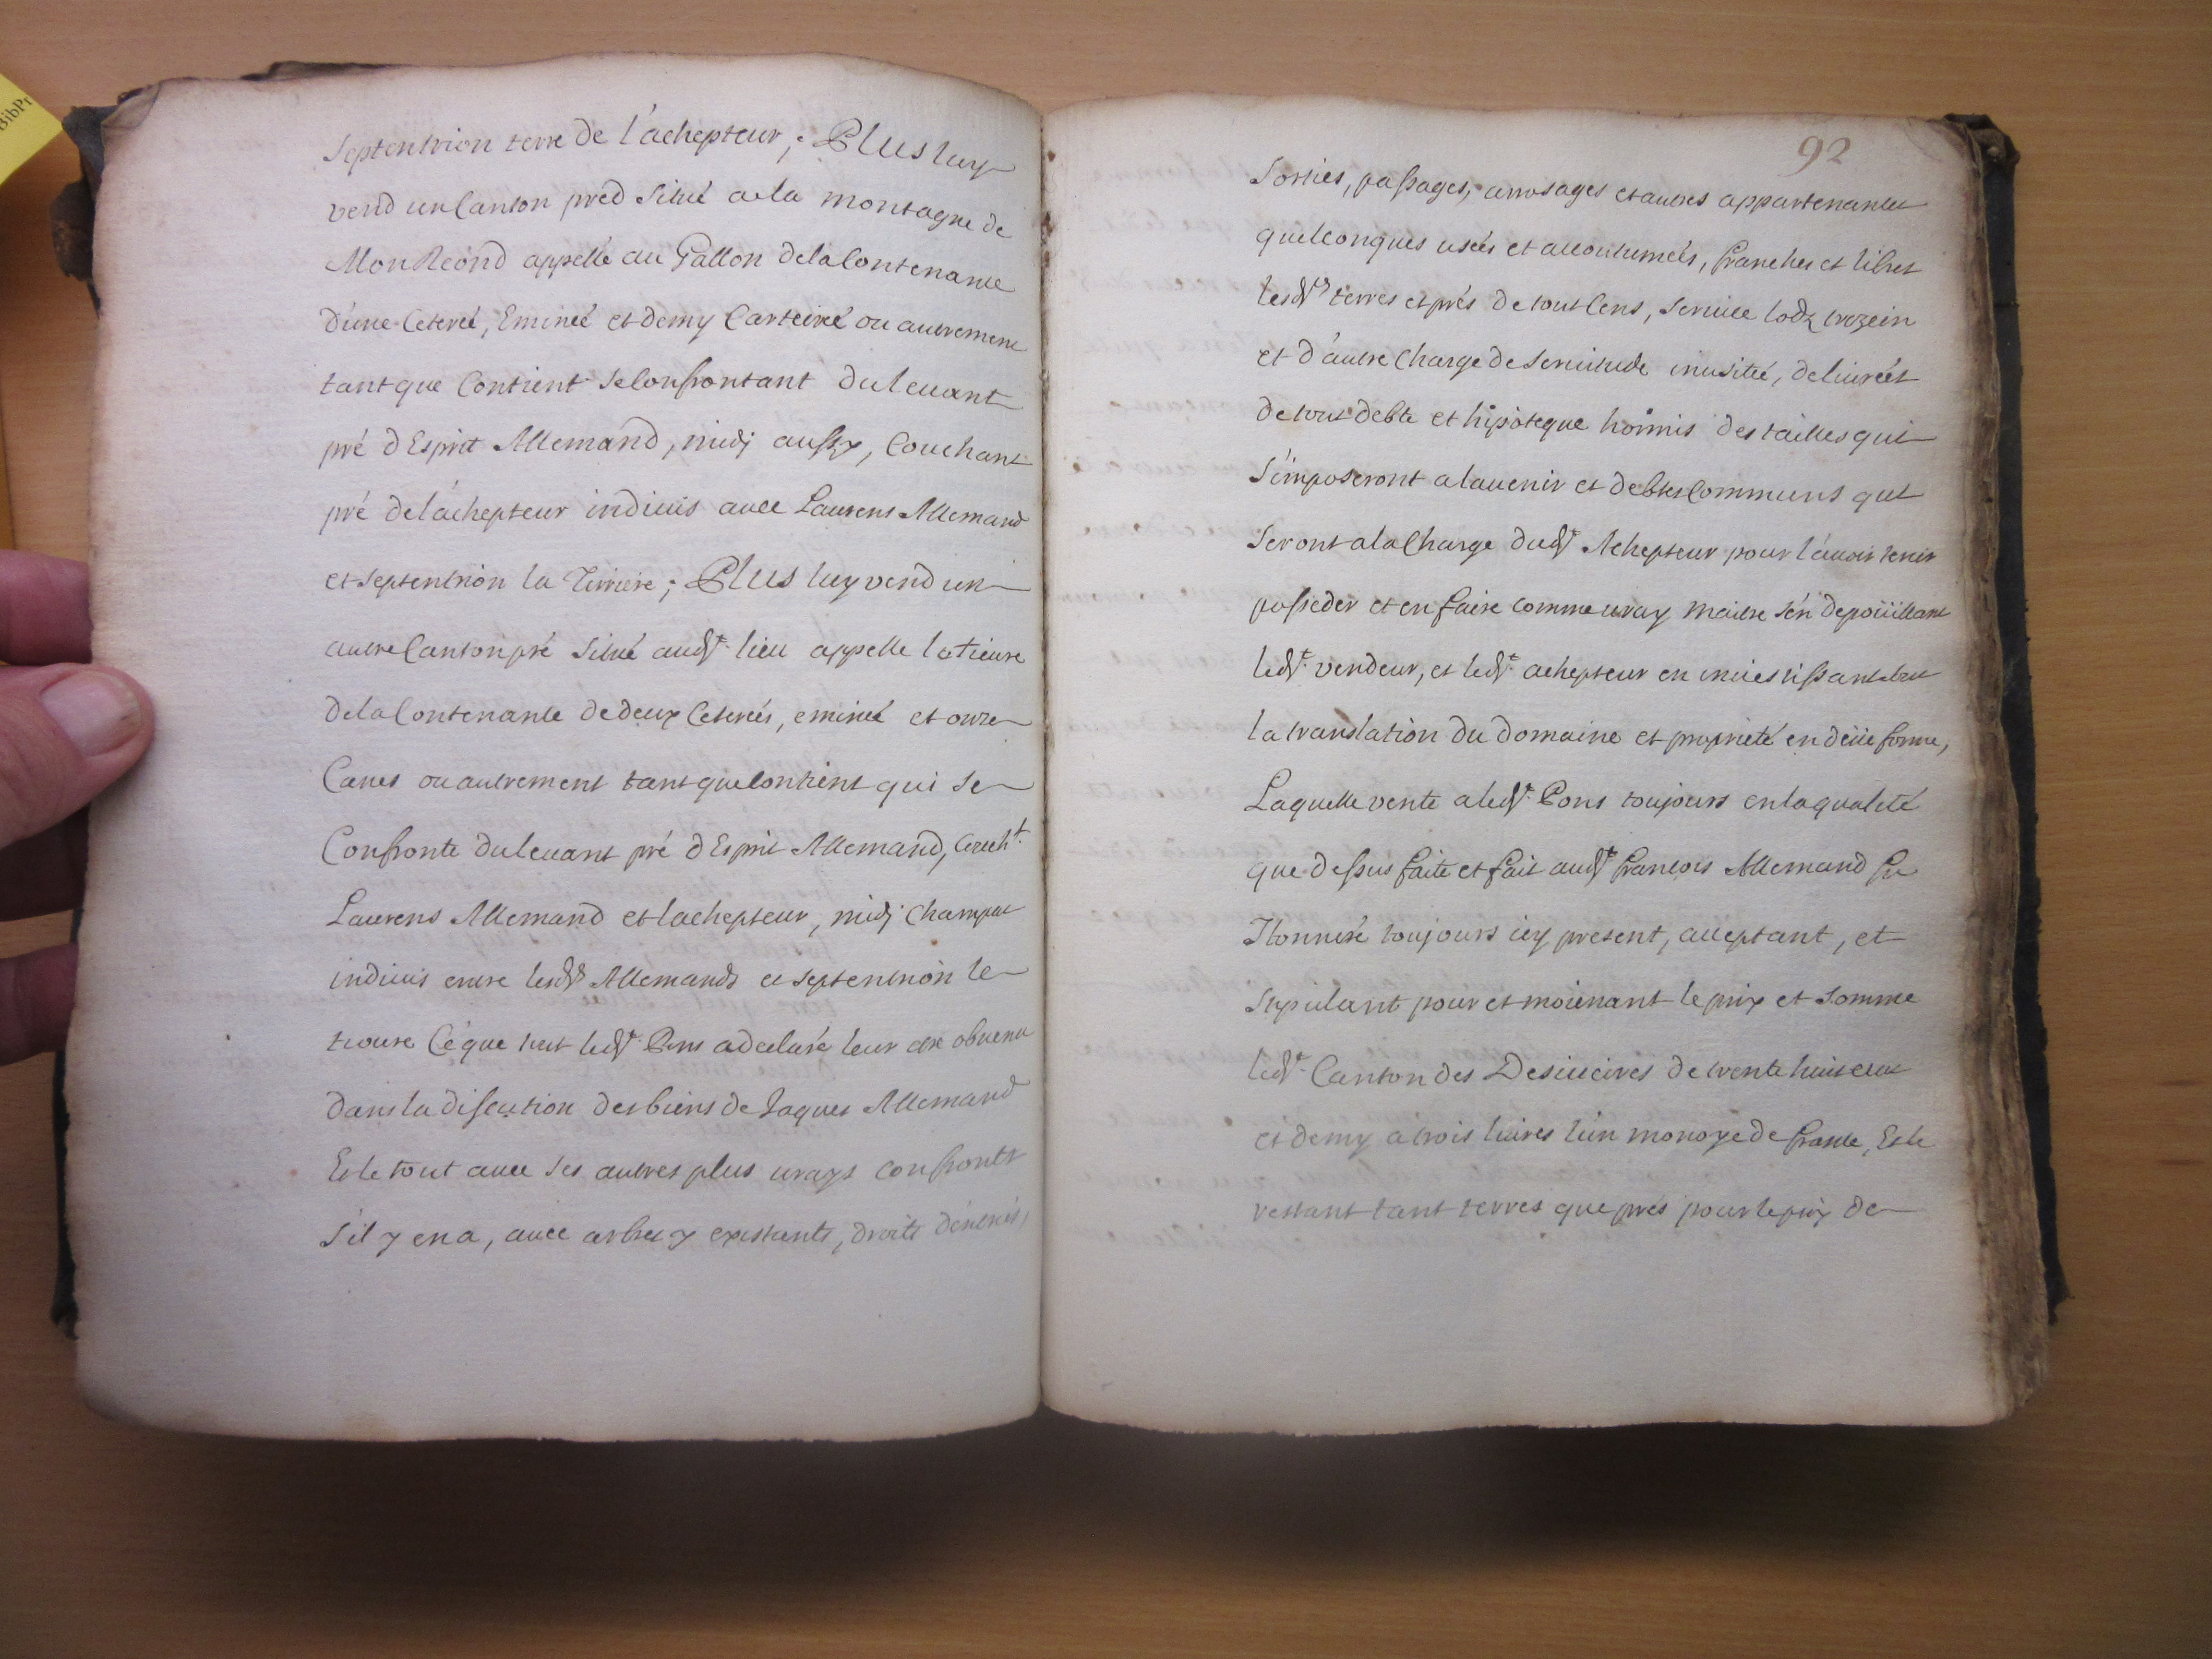 BibPr
Septentrion terre de l'achepteur; Plus luy
vend un Canton pred situé a la montagne de
MonReond appellé au Gallon dela Contenance
d'une Ceteree, Eminée et demy Carteiree ou autrement
tant que Contient se Confrontant du levant
pré d'Esprit Allemand, midj aussy, Couchant
pré de l'achepteur indivis avec Laurens Allemand
et septentrion la ; Plus luy vend un
autre Canton pré situé aud.t lieu appelle la tieure
dela Contenance de deux Ceterées, eminée et onze
Canes ou autrement tant que Contient qui se
Confronte du levant pré d'Esprit Allemand, Couch.t
Laurens Allemand et lachepteur, midj
indivis entre lesd.s Allemands et septentrion le
Cé que tout led.t Pons a declaré leur etre obvenu
dans la discution des biens de Jaques Allemand
Et le tout avec ses autres plus vrays confronts
s'il y en a, avec arbres y existants, droits d'entrées,
92
Sorties, passages, arrosages et autres appartenances
quelconques usées et accoutumées, franches et libres
lesd.tes terres et prés de tout Cens, service lodz trezein
et d'autre Charge de servitude inusitée, delivrées
de tout debte et hipoteque hormis des tailles qui
s'imposeront a lavenir et debtes Communs qui
seront a la Charge dud.t Achepteur pour l'avoir tenir
posseder et en faire comme vray maitre s'en depoüillant
led.t vendeur, et led.t achepteur en investissant
la translation du domaine et proprieté en deüe forme,
Laquelle vente a led.t Pons toujours en la qualité
que dessus faite et fait aud.t francois Allemand feu
Honnoré toujours icy present, acceptant, et
stipulant pour et moienant le prix et somme
led.t Canton des de trente huit ecus
et demy a trois livres l'un monoye de france, Et le
restant tant terres que prés pour le prix de